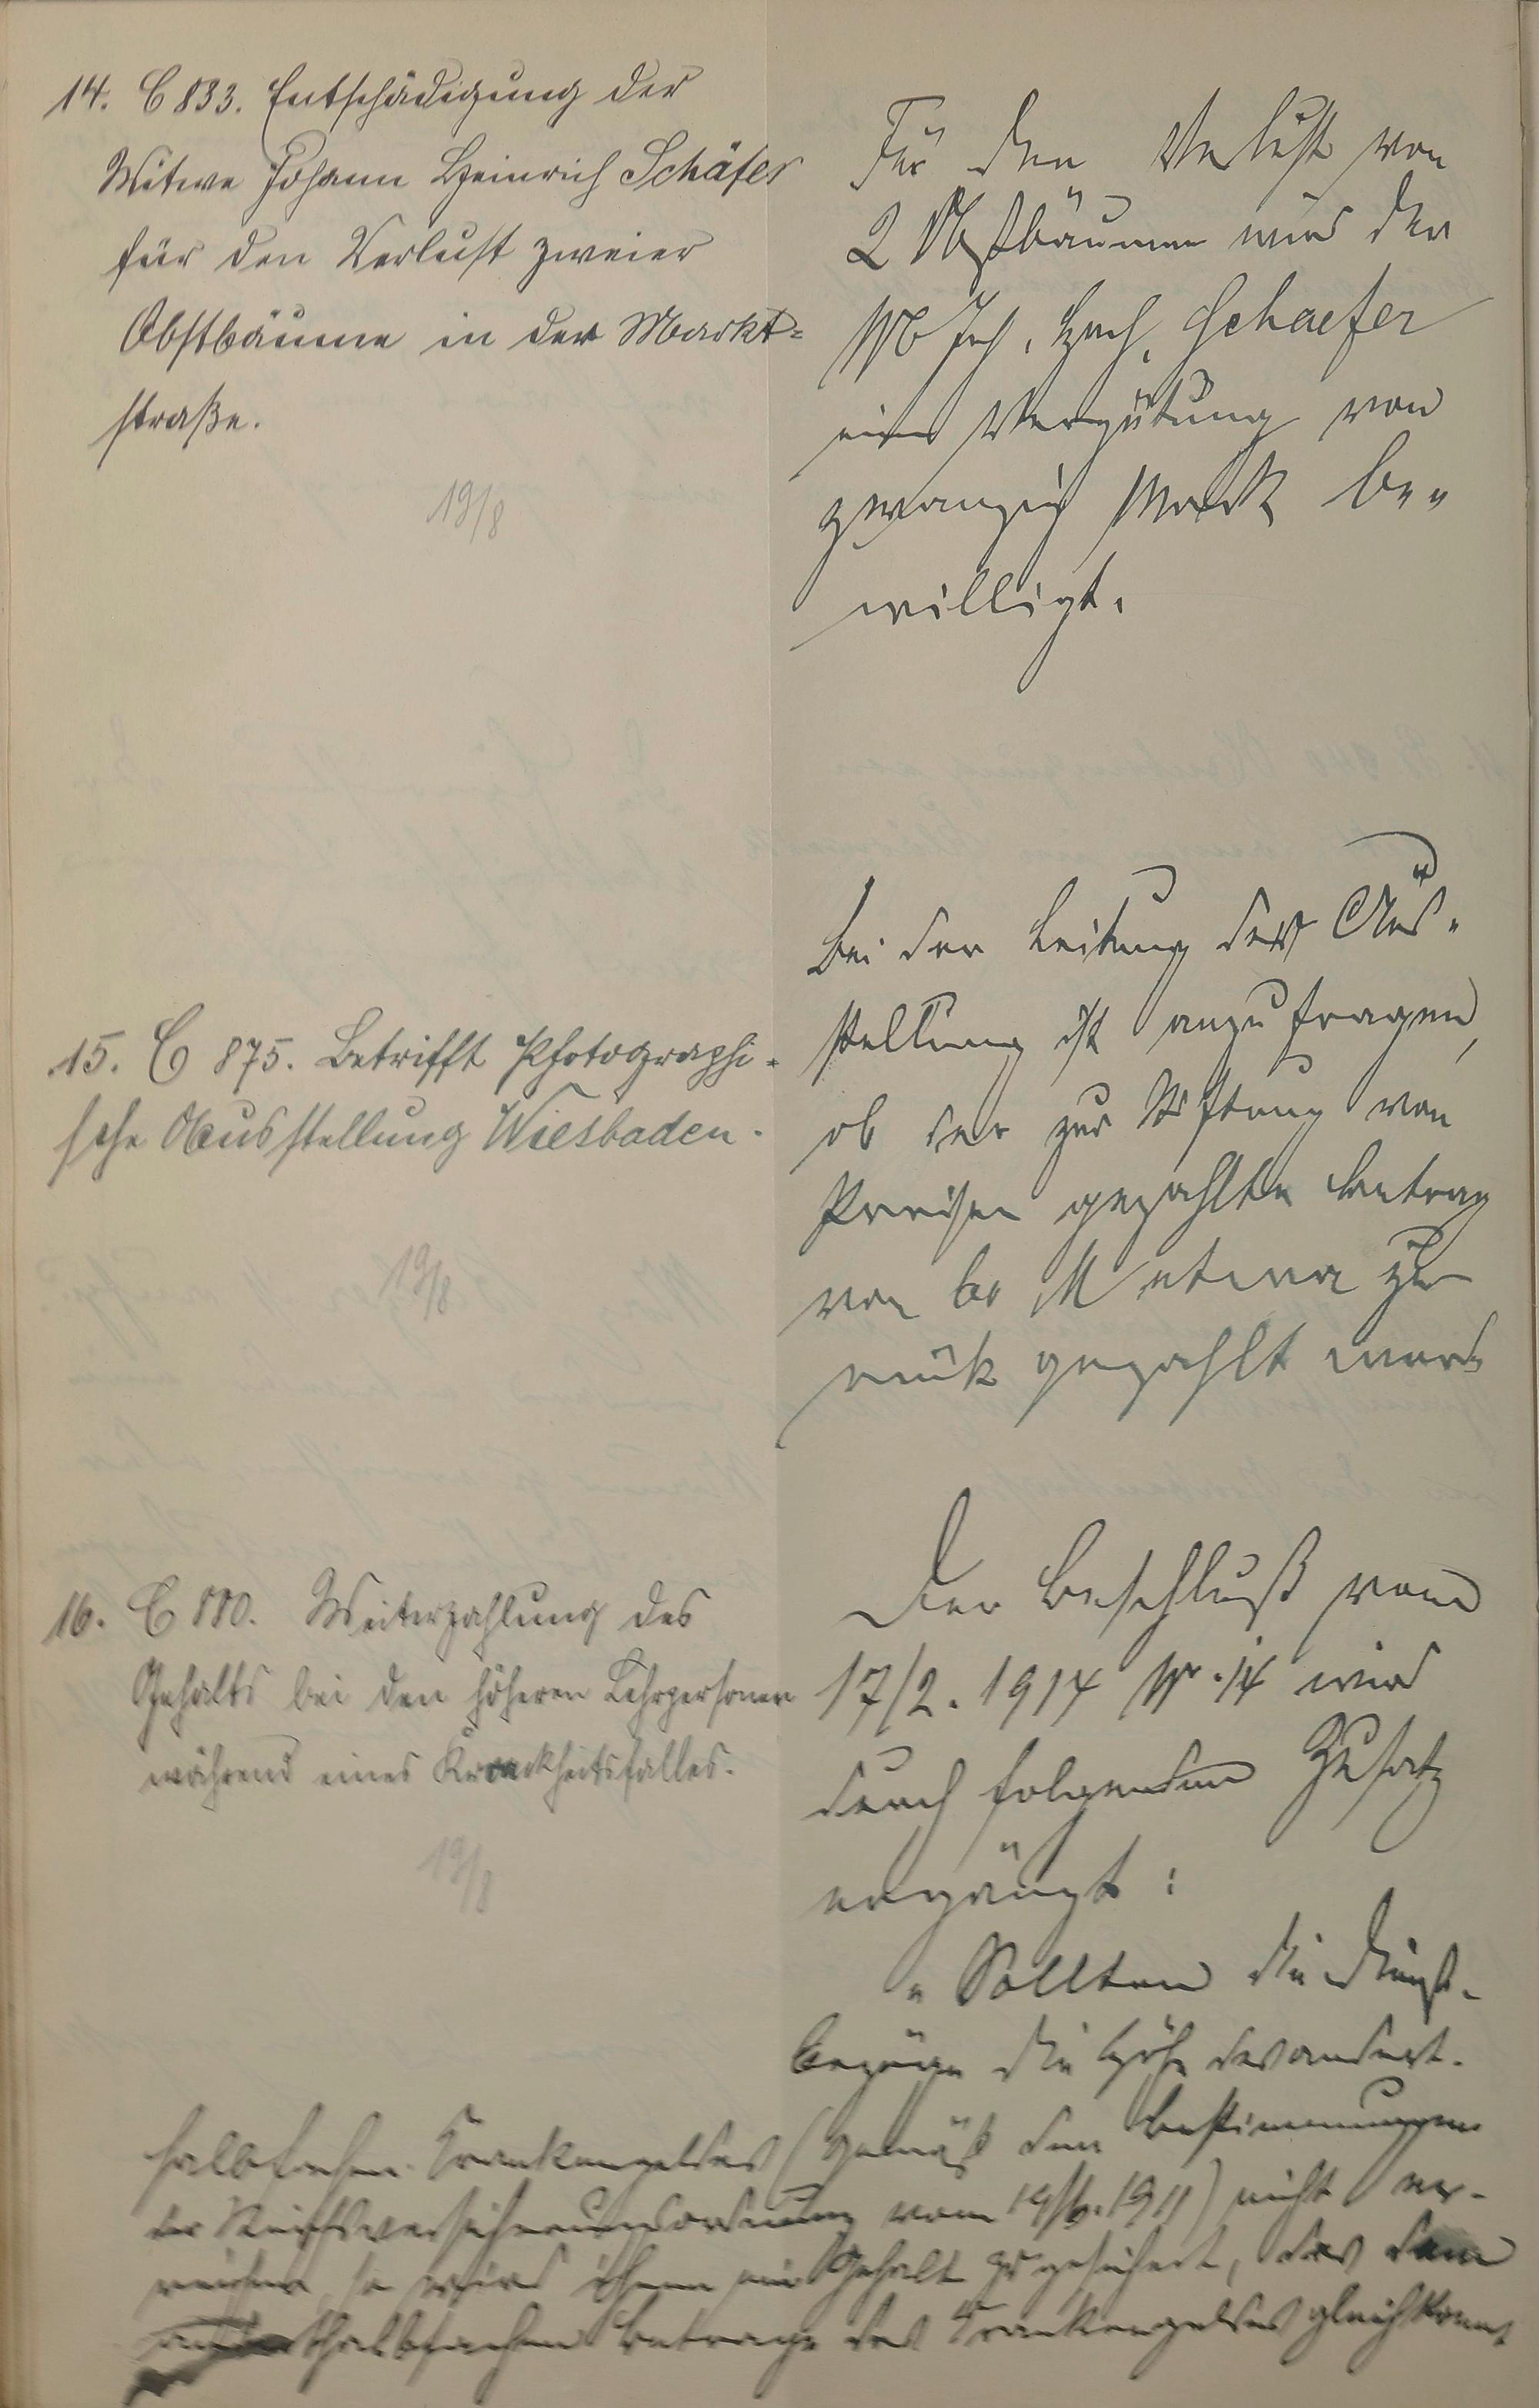 14. C 833. Entschädigung der
Witwe Johann Heinrich Schäfer
für den Verlust zweier
Obstbäume in der Markt=
straße.
19/8
Für den Verlust von
2 Obstbäumen wird der
Joh. Hch. Schaefer
eine Vergütung von
zwanzig Mark be-
willigt.
15. C 875. Betrifft Photographi-
sche Ausstellung Wiesbaden.
19/8
Bei der Leitung der Aus-
stellung ist anzufragen,
ob der zur Stiftung von
Preisen gezahlte Betrag
von M etwa zu
rück gezahlt werde
16. C 880. Weiterzahlung des
Gehalts bei den höheren Lehrpersonen
während eines Krankheitsfalles.
19/8
Der Beschluß vom
17/2. 1914 Nr. 14 wird
durch folgenden Zusatz
ergänzt:
„Sollten die Dienst-
bezüge die Höhe des andert-
halbfachen Krankengeldes (gemäß den Bestimmungen
der Reichsversicherungsordnung vom 19/6. 1911) nicht er-
reichen, so wird ihnen ein Gehalt zugesichert, das dem
anderthalbfachen Betrage des Krankengeldes gleichkommt